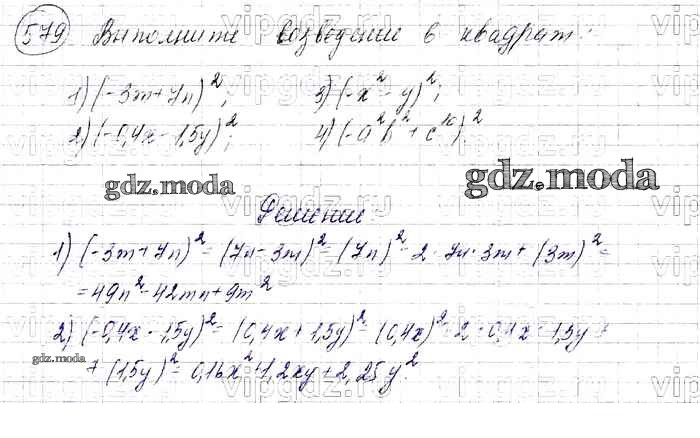 579 Выполните возведение в квадрат:
1) (-3m+7n)²; 3) (-x²-y)²;
2) (-0,4x-1,5y)²; 4) (-a²b²+c¹⁰)²
gdz.moda
gdz.moda
Решение
1) (-3m+7n)² = (7n-3m)² = (7n)² - 2·7n·3m + (3m)² =
= 49n² - 42mn + 9m²
2) (-0,4x-1,5y)² = (0,4x+1,5y)² = (0,4x)² + 2·0,4x·1,5y +
gdz.moda
+ (1,5y)² = 0,16x² + 1,2xy + 2,25y²